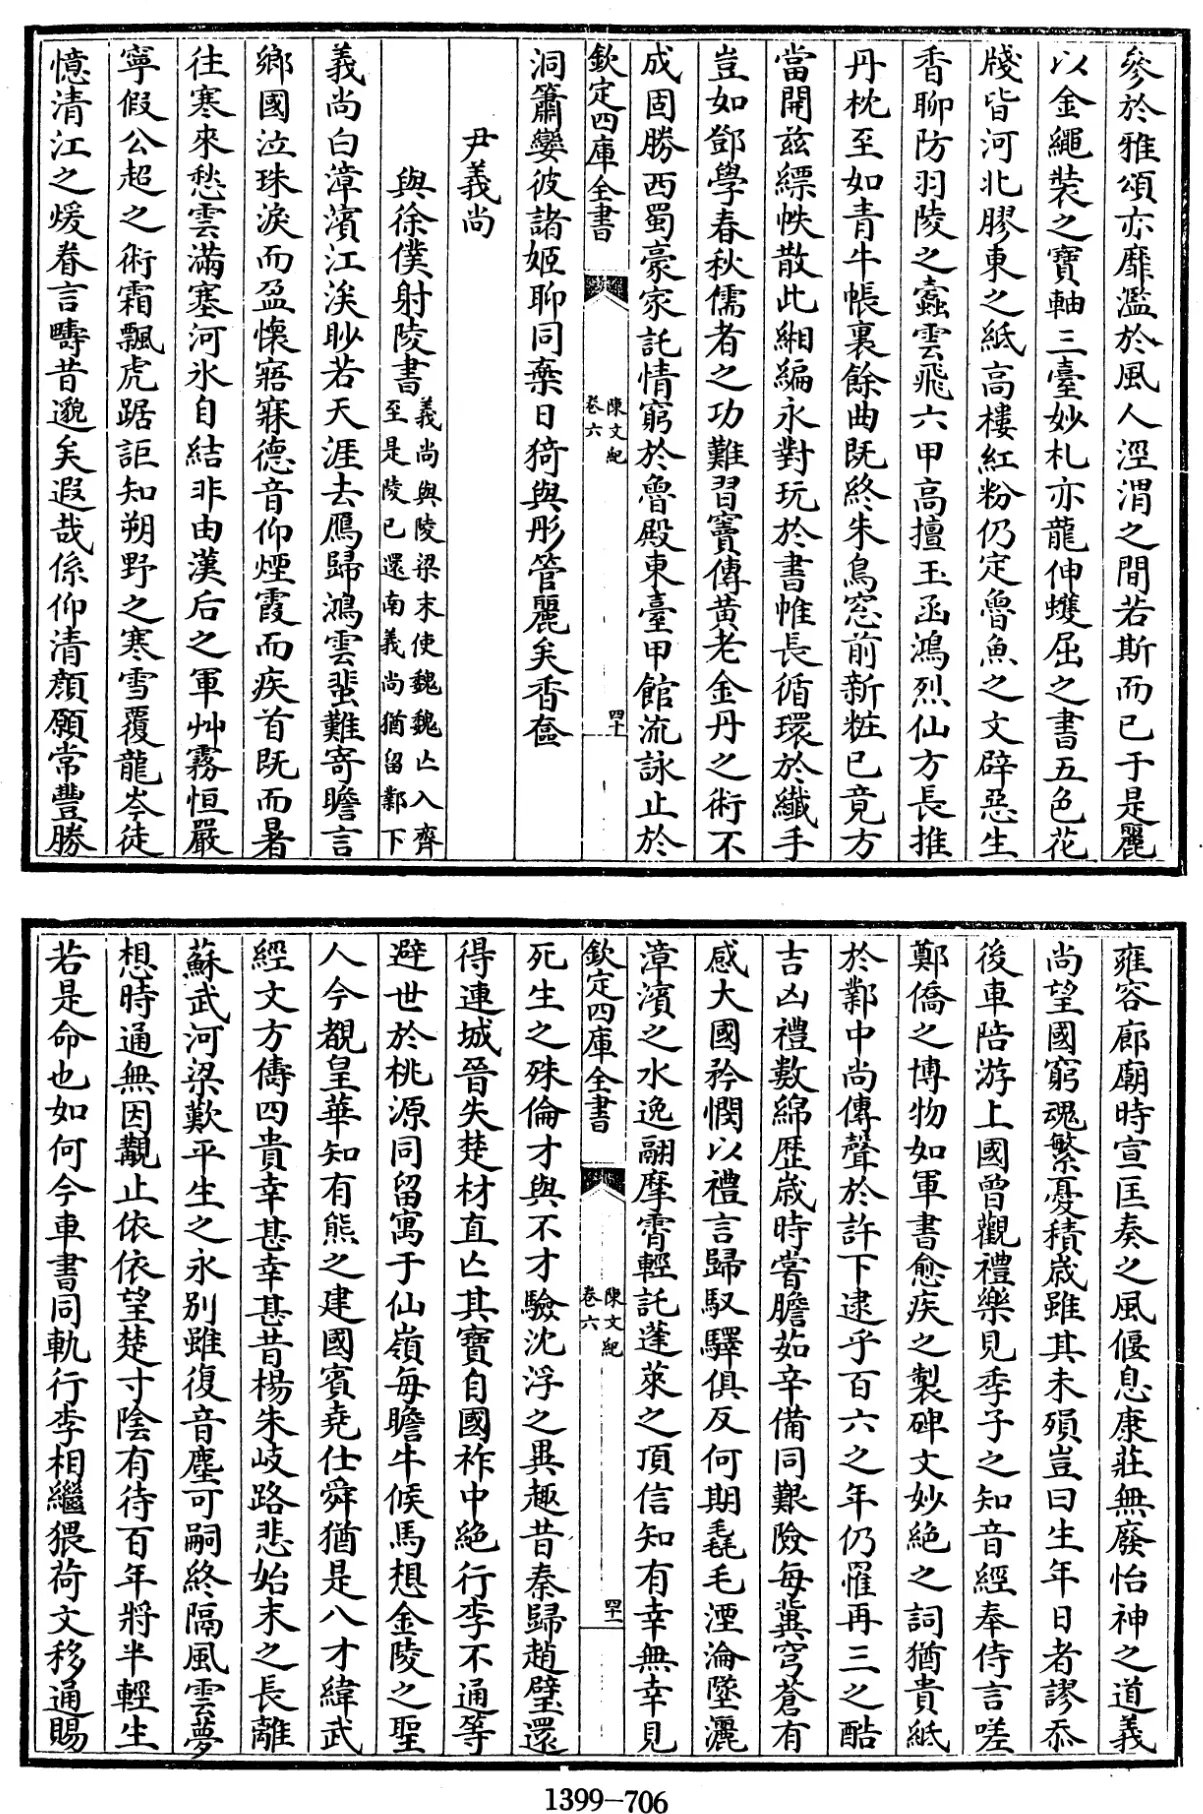 參於雅頌亦靡濫於風人涇渭之間若斯而已于是麗
以金繩裝之寶軸三臺妙札亦龍伸蠖屈之書五色花
牋皆河北膠東之紙高樓紅粉仍定魯魚之文辟惡生
香聊防羽陵之蠧雲飛六甲高擅玉函鴻烈仙方長推
丹枕至如青牛帳裏餘曲既終朱鳥窓前新粧已竟方
當開兹縹帙散此緗編永對玩於書帷長循環於纖手
豈如鄧學春秋儒者之功難習竇傳黄老金丹之術不
成固勝西蜀豪家託情窮於魯殿東臺甲館流詠止於
欽定四庫全書
陳文紀
卷六
四十
洞簫孌彼諸姬聊同棄日猗與彤管麗矣香奩
尹義尚
與徐僕射陵書
義尚與陵梁末使魏魏亡入齊
至是陵已還南義尚猶留鄴下
義尚白漳濱江涘眇若天涯去鴈歸鴻雲蜚難寄瞻言
鄉國泣珠淚而盈懷寤寐德音仰煙霞而疾首既而暑
往寒來愁雲滿塞河氷自結非由漢后之軍艸霧恒嚴
寧假公超之術霜飄虎踞詎知朔野之寒雪覆龍岑徒
憶清江之煖眷言疇昔邈矣遐哉係仰清顔願常豐勝
雍容廊廟時宣匡奏之風偃息康莊無廢怡神之道義
尚望國窮魂繁憂積歲雖其未殞豈曰生年日者謬忝
後車陪游上國曾觀禮樂見季子之知音經奉侍言嗟
鄭僑之博物如軍書愈疾之製碑文妙絶之詞猶貴紙
於鄴中尚傳聲於許下逮乎百六之年仍罹再三之酷
吉凶禮數綿歷歲時嘗膽茹辛備同艱險每冀穹蒼有
感大國矜憫以禮言歸馭驛俱反何期毳毛湮淪墜灑
漳濱之水逸翮摩霄輕託蓬萊之頂信知有幸無幸見
欽定四庫全書
陳文紀
卷六
四十一
死生之殊倫才與不才驗沈浮之異趣昔秦歸趙璧還
得連城晉失楚材直亡其寶自國祚中絶行李不通等
避世於桃源同留寓于仙嶺每瞻牛候馬想金陵之聖
人今覩皇華知有熊之建國賓堯仕舜猶是八才緯武
經文方儔四貴幸甚幸甚昔楊朱岐路悲始末之長離
蘇武河梁歎平生之永别雖復音塵可嗣終隔風雲夢
想時通無因覯止依依望楚寸陰有待百年將半輕生
若是命也如何今車書同軌行李相繼猥荷文移通賜
1399—706